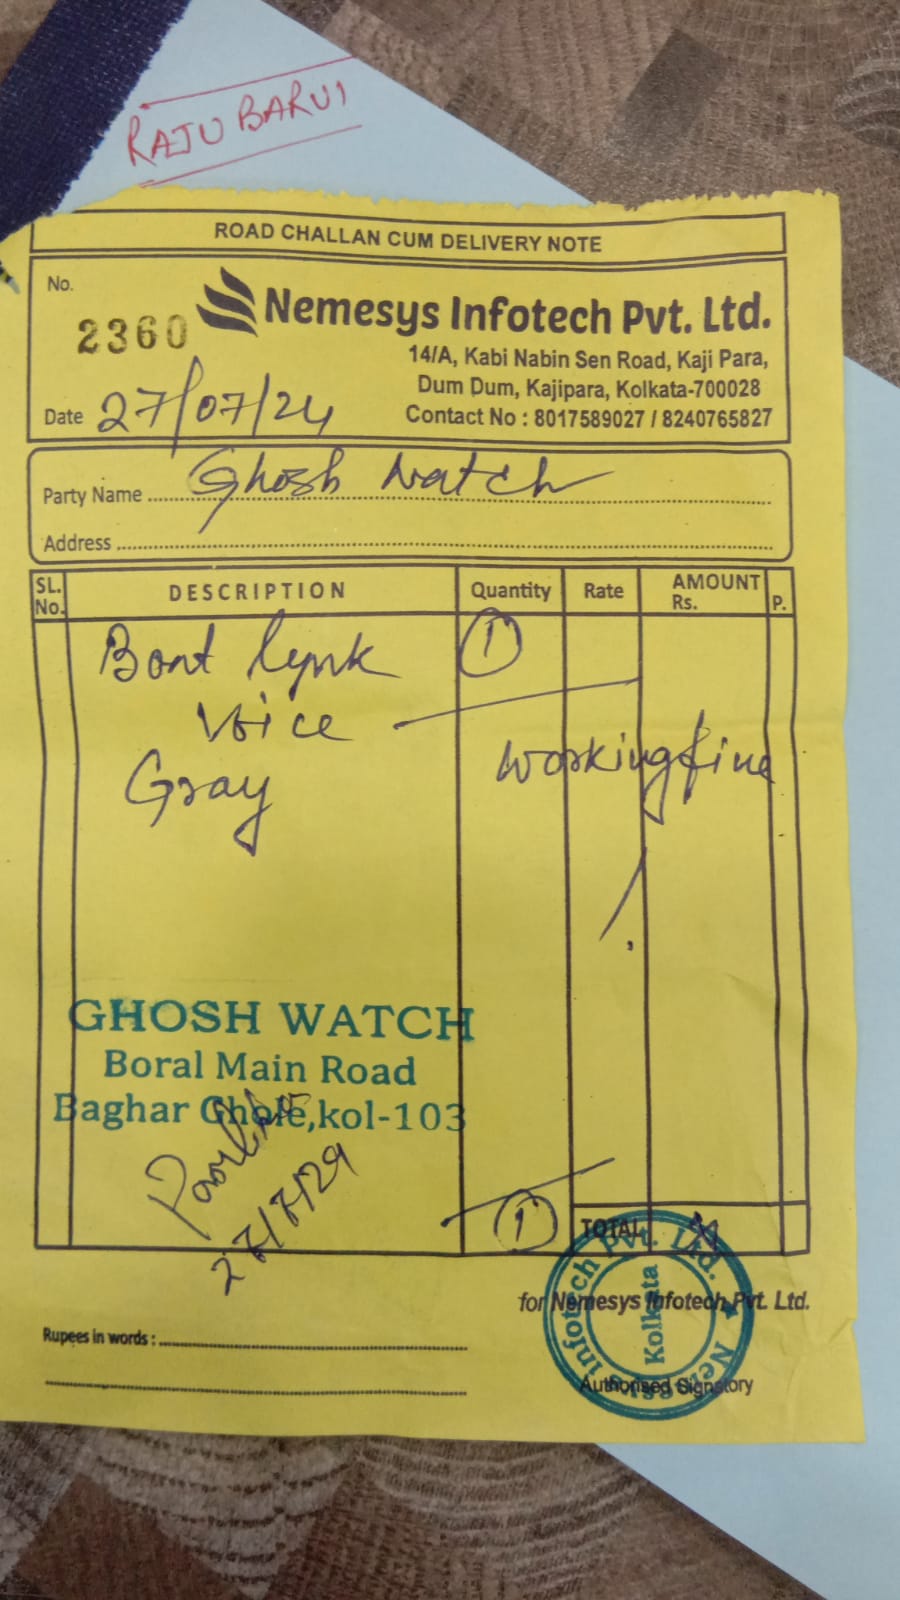 RAJU BARUI
ROAD CHALLAN CUM DELIVERY NOTE
No.
2360
Nemesys Infotech Pvt. Ltd.
14/A, Kabi Nabin Sen Road, Kaji Para,
Dum Dum, Kajipara, Kolkata-700028
Date 27/07/24
Contact No : 8017589027 / 8240765827
Party Name Ghosh Watch
Address
SL. No. DESCRIPTION Quantity Rate AMOUNT Rs. P.
Boat lynk 1
Voice
Gray
Working fine
GHOSH WATCH
Boral Main Road
Baghar Ghole,kol-103
27/7/24
1
TOTAL
for Nemesys Infotech Pvt. Ltd.
Nemesys Infotech Pvt. Ltd.
Kolkata
Rupees in words :
Authorised Signatory